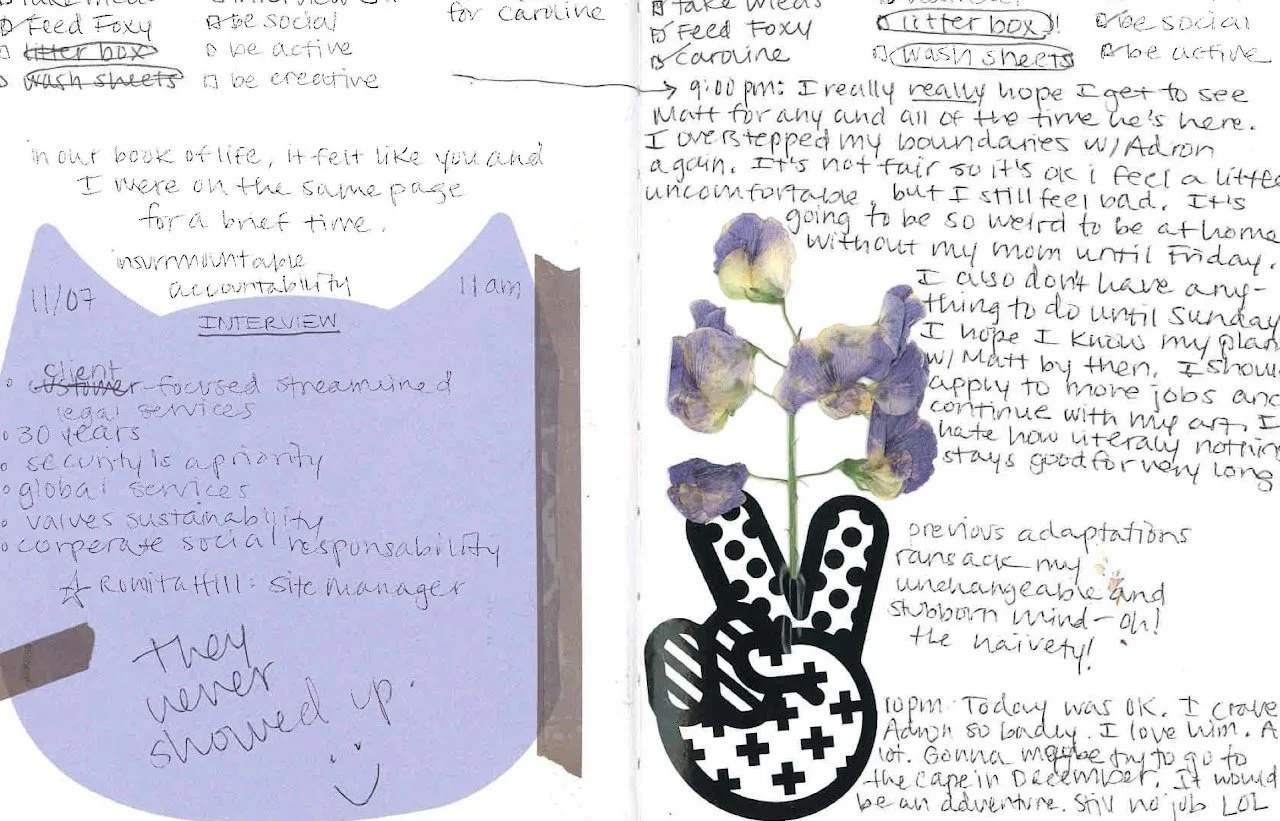 Feed Foxy
litter box
wash sheets
be social
be active
be creative
for Caroline
in our book of life, it felt like you and
I were on the same page
for a brief time.
insurmountable
accountability
11/07
11am
INTERVIEW
client
customer-focused streamlined
legal services
• 30 years
• security is a priority
• global services
• values sustainability
• corperate social responsability
☆ Romita Hill: Site manager
they
never
showed up.
:)
take meds
Feed Foxy
Caroline
litter box!
wash sheets
be social
be active
→ 9:00pm: I really really hope I get to see
Matt for any and all of the time he's here.
I overstepped my boundaries w/Adron
again. It's not fair so it's ok i feel a little
uncomfortable, but I still feel bad. It's
going to be so weird to be at home
without my mom until Friday.
I also don't have any-
thing to do until Sunday
I hope I know my plan
w/ Matt by then. I shou
apply to more jobs and
continue with my art. I
hate how literaly nothin
stays good for very long
previous adaptations
ransack my
unchangeable and
stubborn mind-oh!
the naivety!
10pm: Today was ok. I crave
Adron so badly. I love him. A
lot. Gonna maybe try to go to
the cape in December. It would
be an adventure. Still no job LOL